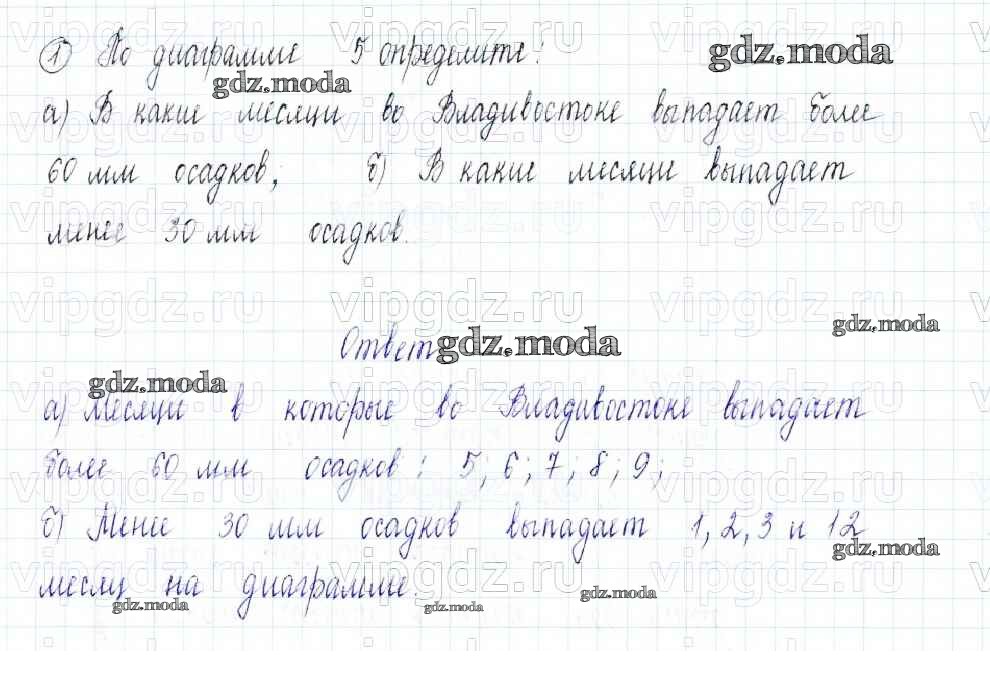 1) По диаграмме 5 определите:
а) В какие месяцы во Владивостоке выпадает более
60 мм осадков; б) В какие месяцы выпадает
менее 30 мм осадков.
Ответ
а) Месяцы в которые во Владивостоке выпадает
более 60 мм осадков: 5; 6; 7; 8; 9;
б) Менее 30 мм осадков выпадает 1, 2, 3 и 12
месяц на диаграмме.
gdz.moda
gdz.moda
gdz.moda
gdz.moda
gdz.moda
gdz.moda
gdz.moda
gdz.moda
gdz.moda
vipgdz.ru